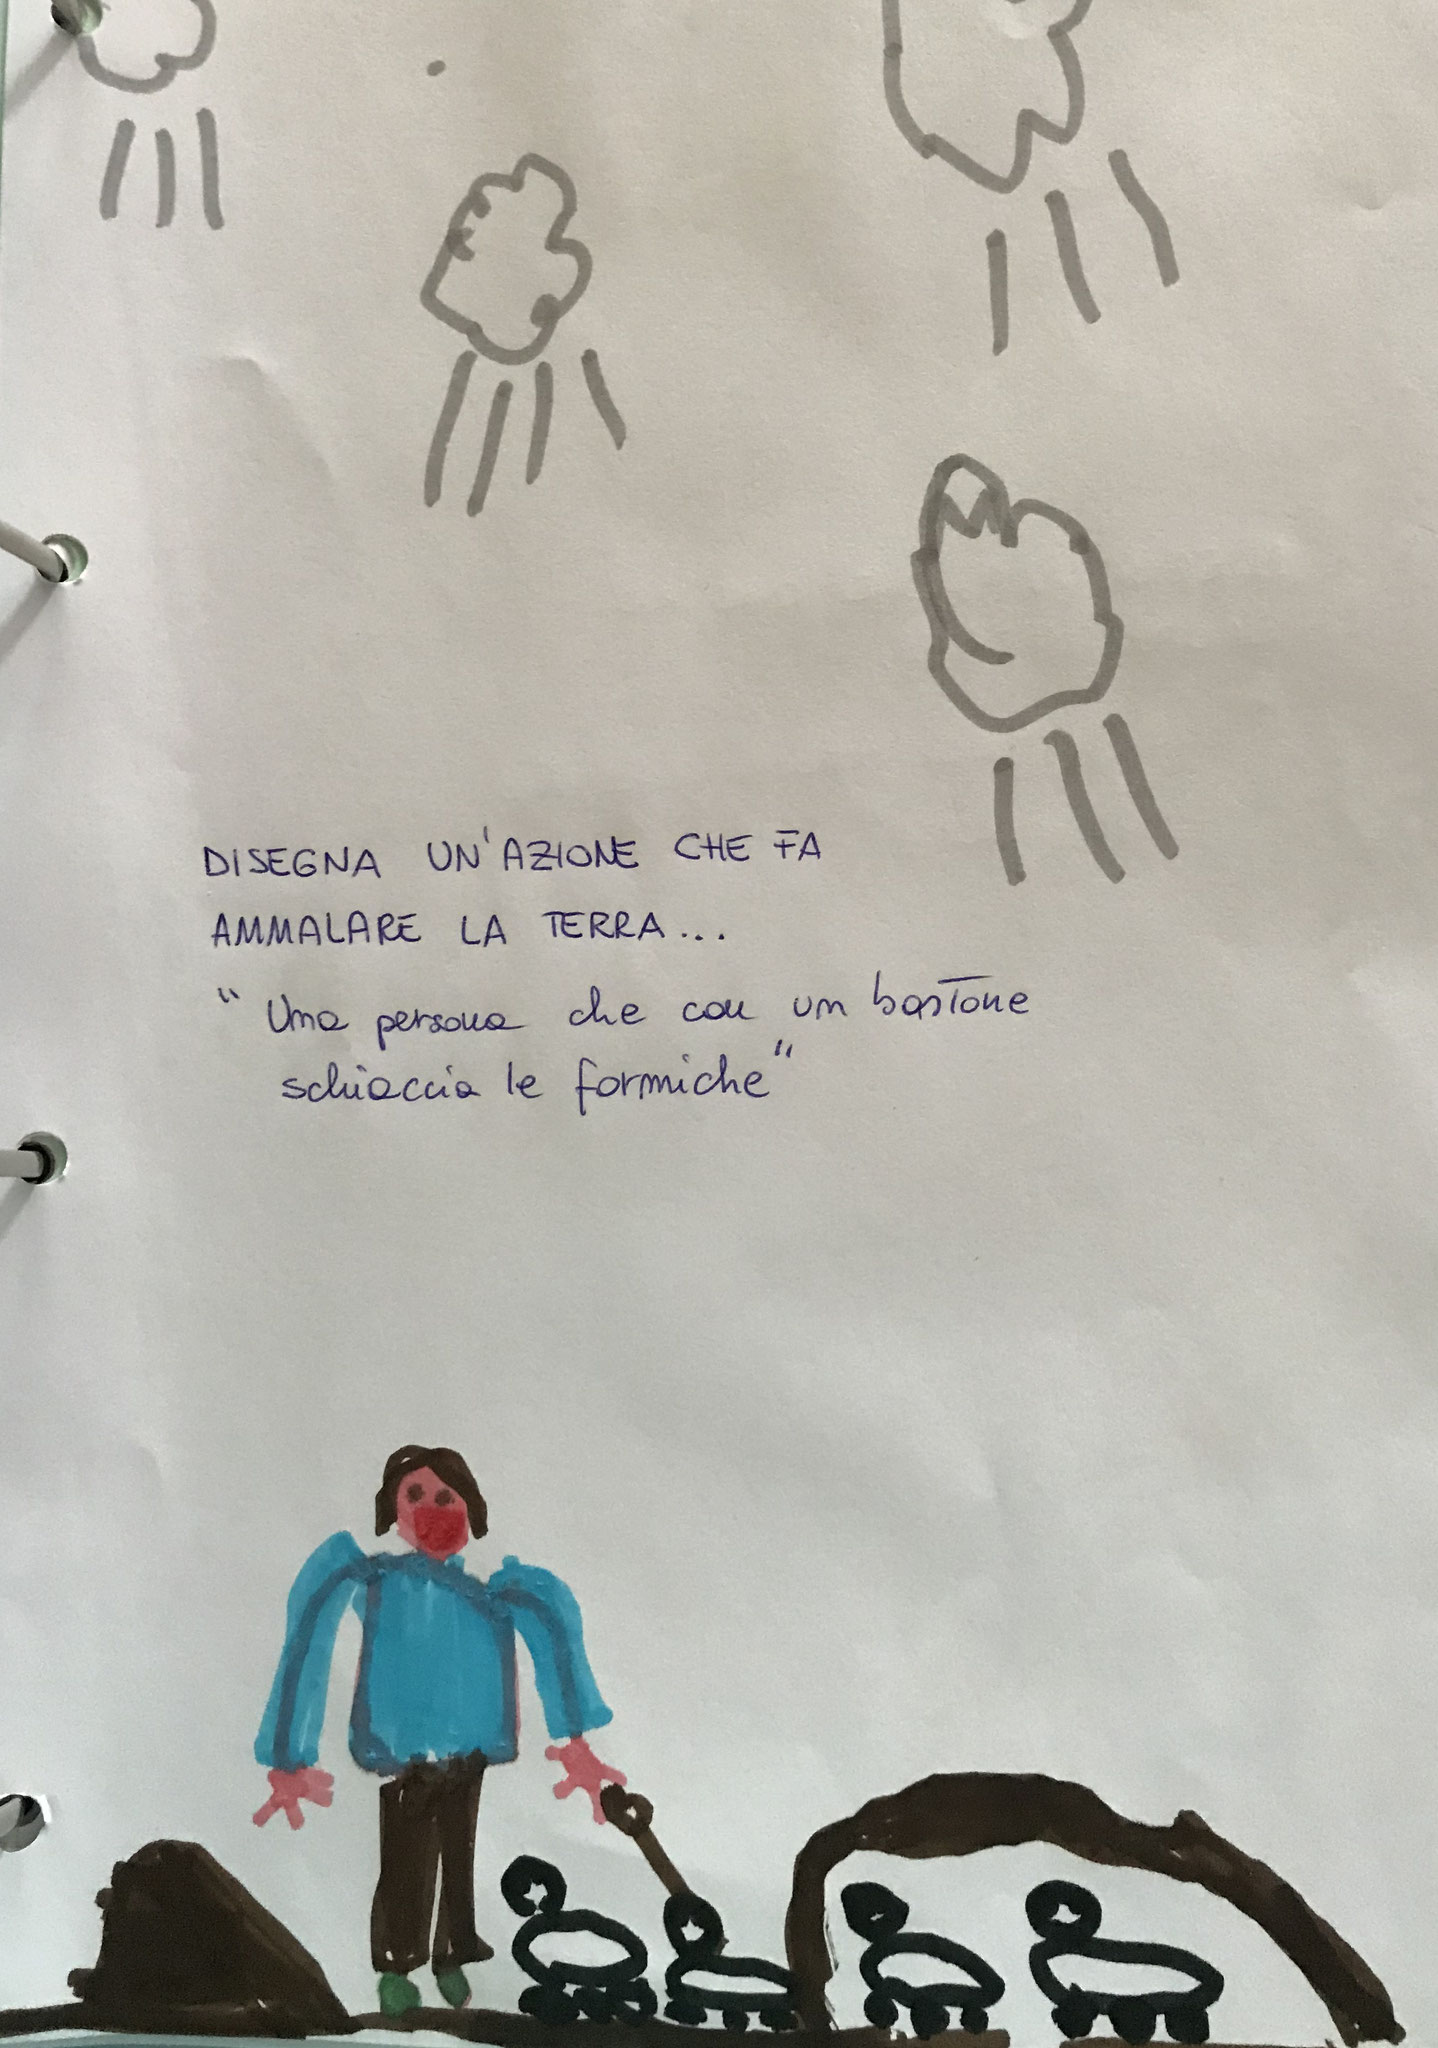 DISEGNA UN'AZIONE CHE FA
AMMALARE LA TERRA...
"Una persona che con un bastone
schiaccia le formiche"